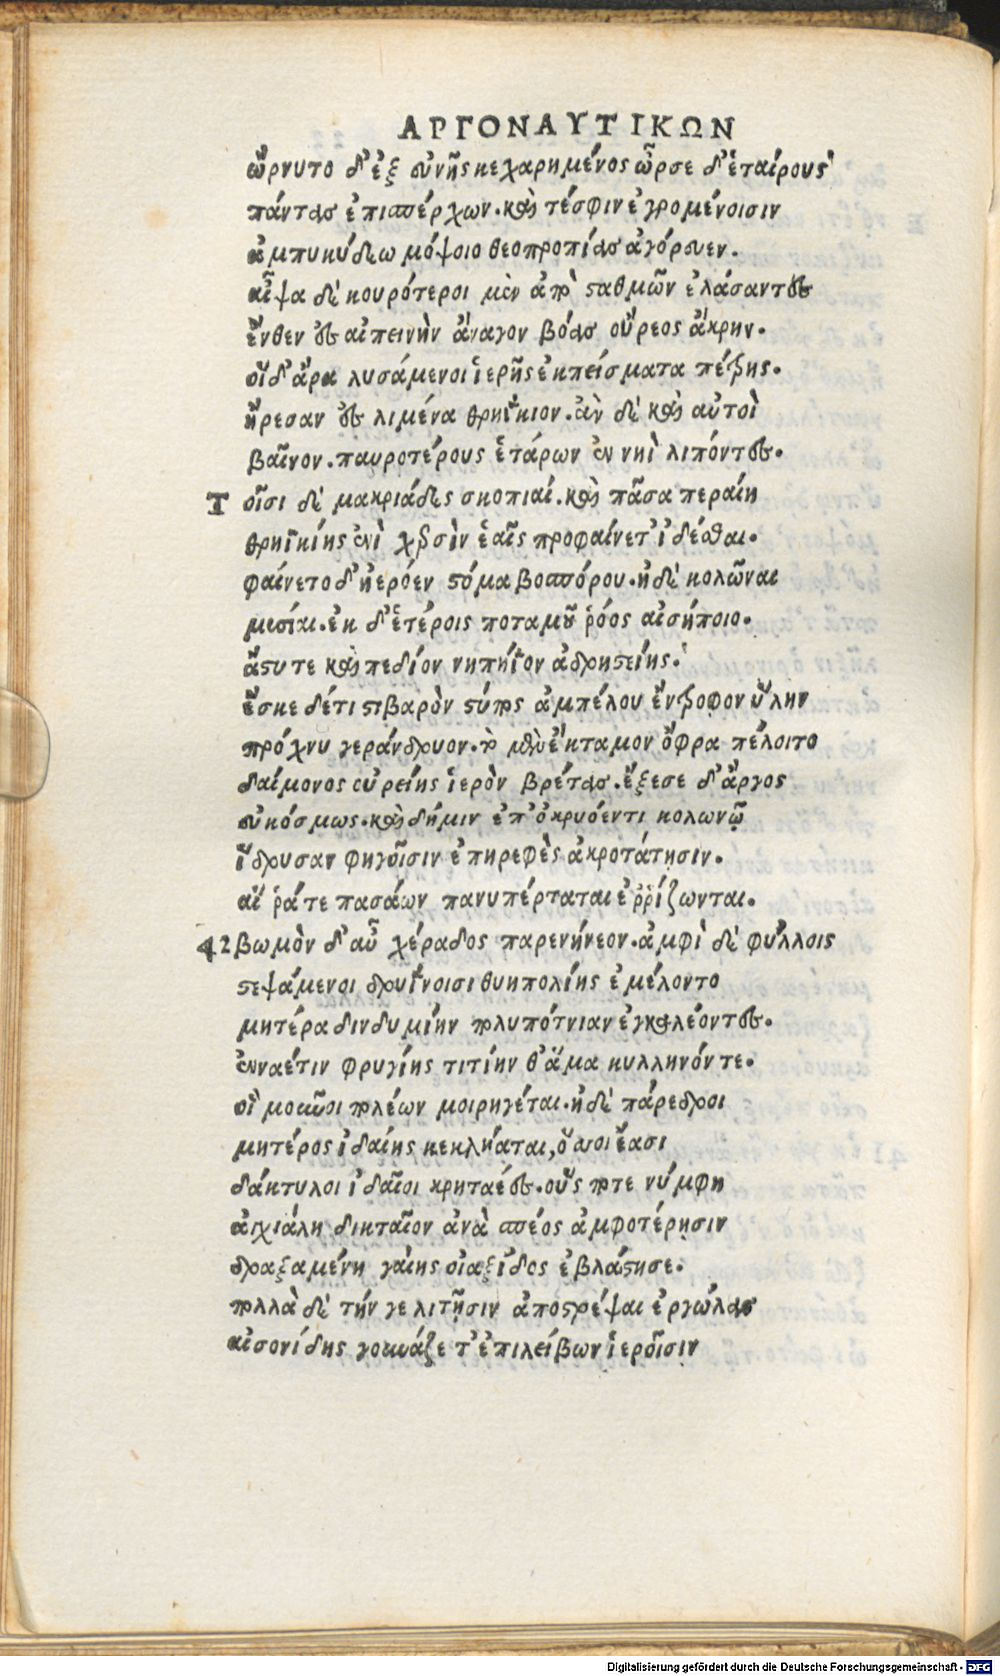 ΑΡΓΟΝΑΥΤΙΚΩΝ
ὤρνυτο δ' ἐξ εὐνῆς κεχαρημένος ὦρσε δ' ἑταίρους
πάντας ἐπισπέρχων. καὶ τέσφιν ἐγρομένοισιν
ἀμπυκίδεω μόψοιο θεοπροπίας ἀγόρευεν.
αἶψα δὲ κουρότεροι μὲν ἀπὸ σταθμῶν ἐλάσαντες
ἔνθεν ἐς αἰπεινὴν ἄναγον βόας οὔρεος ἄκρην.
οἵδ' ἄρα λυσάμενοι ἱερῆς ἐκ πείσματα πέτρης.
ἤρεσαν ἐς λιμένα θρηΐκιον. ἂν δὲ καὶ αὐτοὶ
βαῖνον. παυροτέρους ἑτάρων ἐν νηὶ λιπόντες.
Τοῖσι δὲ μακριάδες σκοπιαί. καὶ πᾶσα περαίη
θρηϊκίης ἐνὶ χερσὶν ἑαῖς προφαίνετ' ἰδέσθαι.
φαίνετο δ' ἠερόεν στόμα βοσπόρου. ἠδὲ κολῶναι
μυσίαι. ἐκ δ' ἑτέροις ποταμοῦ ῥόος αἰσήποιο.
ἄστυ τε καὶ πεδίον νηπήϊον ἀδρηστείης.
ἔσκε δέ τι στιβαρὸν στύπος ἀμπέλου ἔντροφον ὕλην
πρόχνυ γεράνδρυον. τὸ μὲν ἔκταμον ὄφρα πέλοιτο
δαίμονος οὐρείης ἱερὸν βρέτας. ἔξεσε δ' ἄργος
εὐκόσμως. καὶ δήμιν ἐπ' ὀκρυόεντι κολωνῷ
ἵδρυσαν φηγοῖσιν ἐπηρεφὲς ἀκροτάτησιν.
αἵ ῥά τε πασάων πανυπέρταται ἐῤῥίζωνται.
42 βωμὸν δ' αὖ χέραδος παρενήνεον. ἀμφὶ δὲ φύλλοις
στεψάμενοι δρυΐνοισι θυηπολίης ἐμέλοντο
μητέρα δινδυμίην πολυπότνιαν ἐγκαλέοντες.
ἐνναέτιν φρυγίης τιτίην θ' ἅμα κυλληνόν τε.
οἳ μοῦνοι πολέων μοιρηγέται. ἠδὲ πάρεδροι
μητέρος ἰδαίης κεκλήαται, ὅσσοι ἔασι
δάκτυλοι ἰδαῖοι κρηταέες. οὕς ποτε νύμφη
ἀγχιάλη δικταῖον ἀνὰ σπέος ἀμφοτέρησιν
δραξαμένη γαίης οἰαξίδος ἐβλάστησε.
πολλὰ δὲ τήν γε λιτῇσιν ἀποστρέψαι ἐργώλας
αἰσονίδης γουνάζετ' ἐπιλείβων ἱεροῖσιν
Digitalisierung gefördert durch die Deutsche Forschungsgemeinschaft - DFG